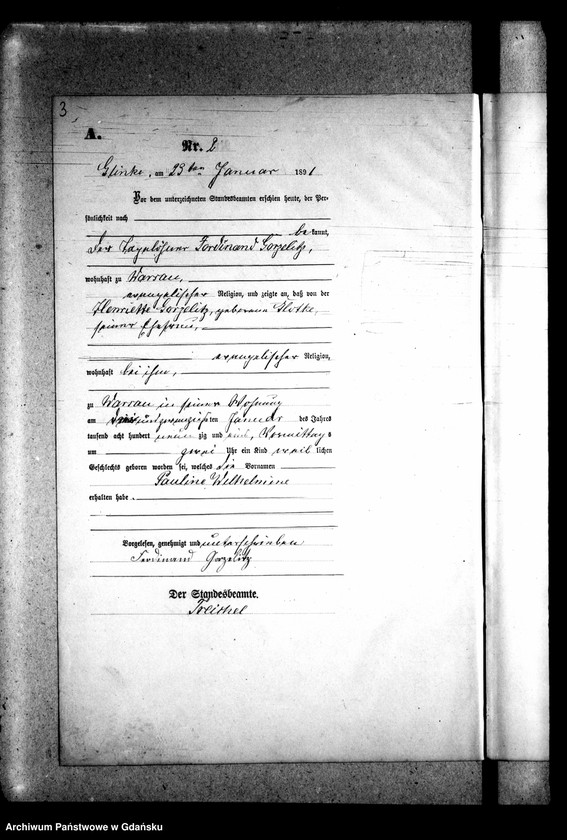 3
A.
Nr. 2
Glinke, am 23ten Januar 1891
Vor dem unterzeichneten Standesbeamten erschien heute, der Per-
sönlichkeit nach
bekannt,
der Tagelöhner Ferdinand Gorzelitz,
wohnhaft zu Warrau,
evangelischer Religion, und zeigte an, daß von der
Henriette Gorzelitz, geborene
seiner Ehefrau,
evangelischer Religion,
wohnhaft bei ihm,
zu Warrau in seiner Wohnung
am undzwanzigsten Januar des Jahres
tausend acht hundert neunzig und eins, Vormittags
um zwei Uhr ein Kind weiblichen
Geschlechts geboren worden sei, welches die Vornamen
Pauline Wilhelmine
erhalten habe.
Vorgelesen, genehmigt und unterschrieben
Ferdinand Gorzelitz
Der Standesbeamte.
Archiwum Państwowe w Gdańsku